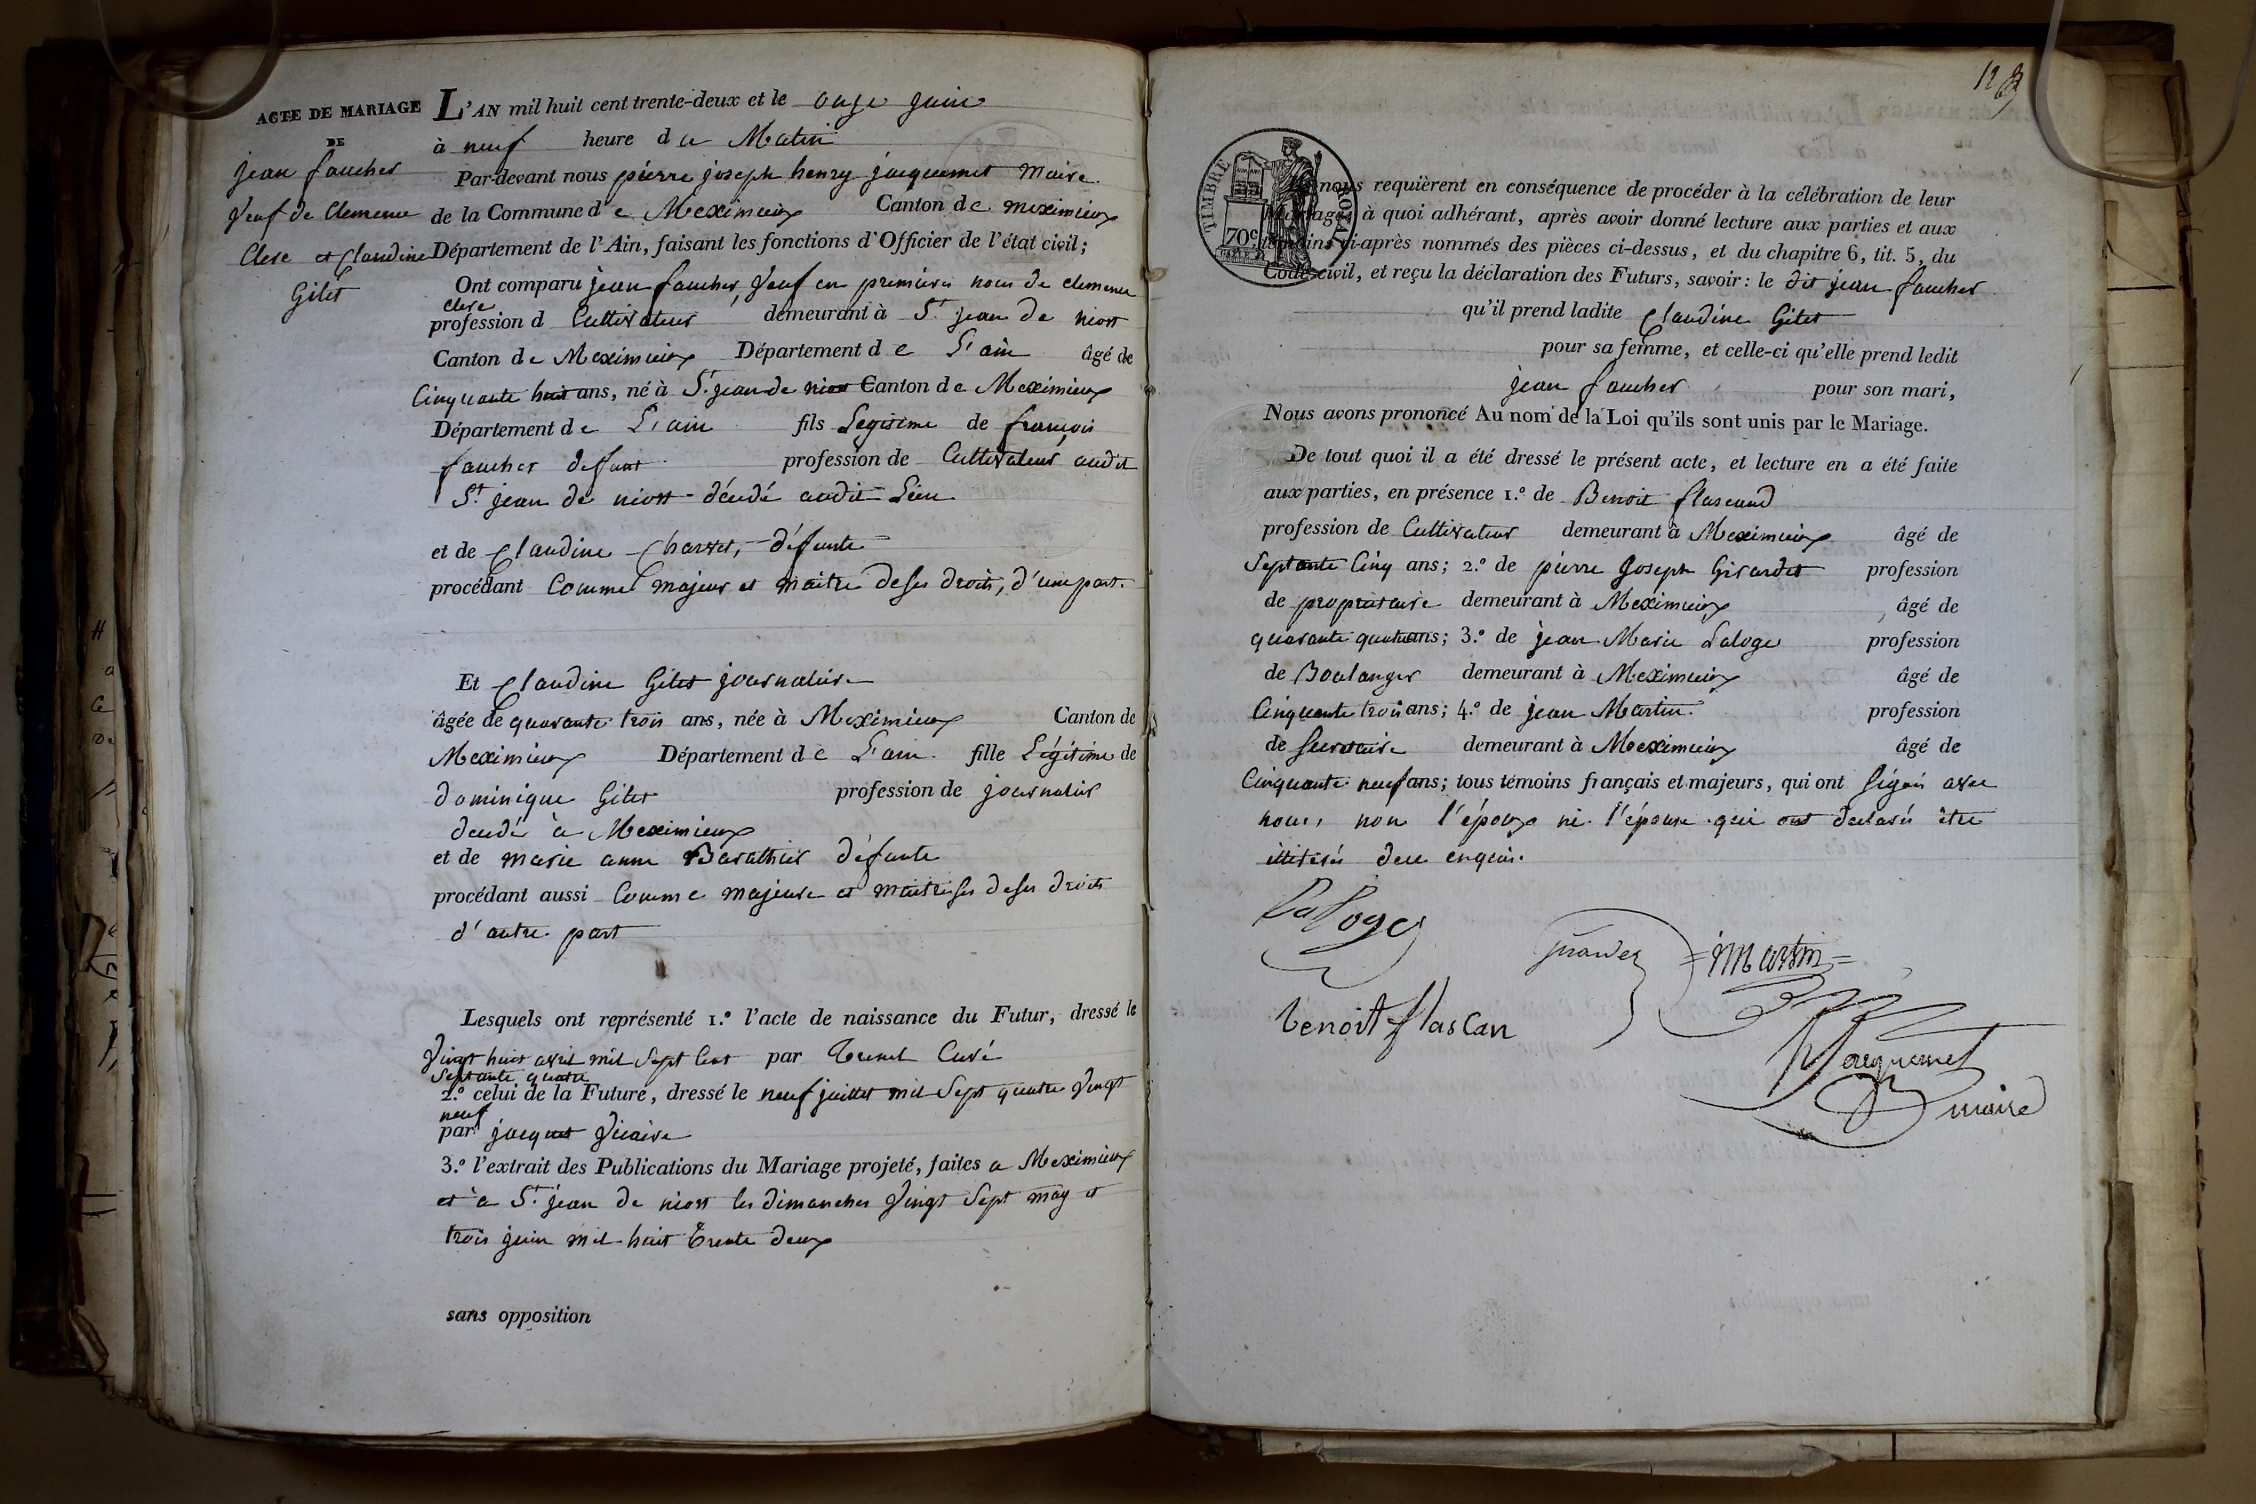 ACTE DE MARIAGE
DE
jean faucher
Veuf de Clemence
Clerc et Claudine
Gilet
L'AN mil huit cent trente-deux et le onze juin
à neuf heure du Matin
Par-devant nous pierre joseph henry jacquemet maire
de la Commune de Meximieux Canton de meximieux
Département de l'Ain, faisant les fonctions d'Officier de l'état civil;
Ont comparu jean faucher, Veuf en premieres noces de clemence
clerc
profession d Cultivateur demeurant à St jean de niost
Canton de Meximieux Département de L'ain âgé de
Cinquante huit ans, né à St jean de niost Canton de Meximieux
Département de L'ain fils Legitime de françois
faucher defunt profession de Cultivateur audit
St jean de niost décédé audit Lieu
et de Claudine Charvet, défunte
procédant Comme majeur et maitre de ses droits, d'une part.
Et Claudine Gilet journalière
âgée de quarante trois ans, née à Meximieux Canton de
Meximieux Département de L'ain. fille Légitime de
dominique Gilet profession de journalier
decedé à Meximieux
et de marie anne Barathier défunte
procédant aussi Comme majeure et maitresse de ses droits
d'autre part
Lesquels ont représenté 1.º l'acte de naissance du Futur, dressé le
Vingt huit avril mil sept Cent par Curé
septante quatre
2.º celui de la Future, dressé le neuf juillet mil sept quatre Vingt
neuf
par jacquet Vicaire
3.º l'extrait des Publications du Mariage projeté, faites a Meximieux
et à St jean de niost les dimanches Vingt Sept may et
trois juin mil huit trente deux
sans opposition
TIMBRE ROYAL
70c
nous requièrent en conséquence de procéder à la célébration de leur
Mariage, à quoi adhérant, après avoir donné lecture aux parties et aux
témoins ci-après nommés des pièces ci-dessus, et du chapitre 6, tit. 5, du
Code civil, et reçu la déclaration des Futurs, savoir: le dit jean faucher
qu'il prend ladite Claudine Gilet
pour sa femme, et celle-ci qu'elle prend ledit
jean faucher pour son mari,
Nous avons prononcé Au nom de la Loi qu'ils sont unis par le Mariage.
De tout quoi il a été dressé le présent acte, et lecture en a été faite
aux parties, en présence 1.º de Benoit flascand
profession de Cultivateur demeurant à Meximieux âgé de
Septante Cinq ans; 2.º de pierre Joseph Girardet profession
de propriétaire demeurant à Meximieux âgé de
quarante quatre ans; 3.º de jean Marie Laloge profession
de Boulanger demeurant à Meximieux âgé de
Cinquante trois ans; 4.º de jean Martin. profession
de secretaire demeurant à Meximieux âgé de
Cinquante neuf ans; tous témoins français et majeurs, qui ont signés avec
nous, non l'époux ni l'épouse qui ont declarés être
illitérés de ce enquis.
LaLoge
Girardet
= jMartin =
benoit flascan
hJacquemet
maire